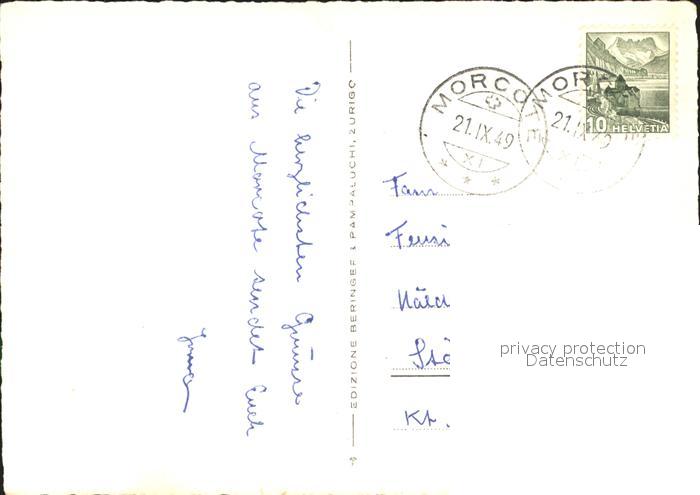 Die herzlichsten Grüsse
aus Morcote sendet Euch
EDIZIONE BERINGER & PAMPALUCHI, ZURIGO
MORCOTE
21.IX.49
XI
MOR
21.IX.49
10 HELVETIA
Fam
Feusi
Näch
Stä
Kt.
privacy protection
Datenschutz